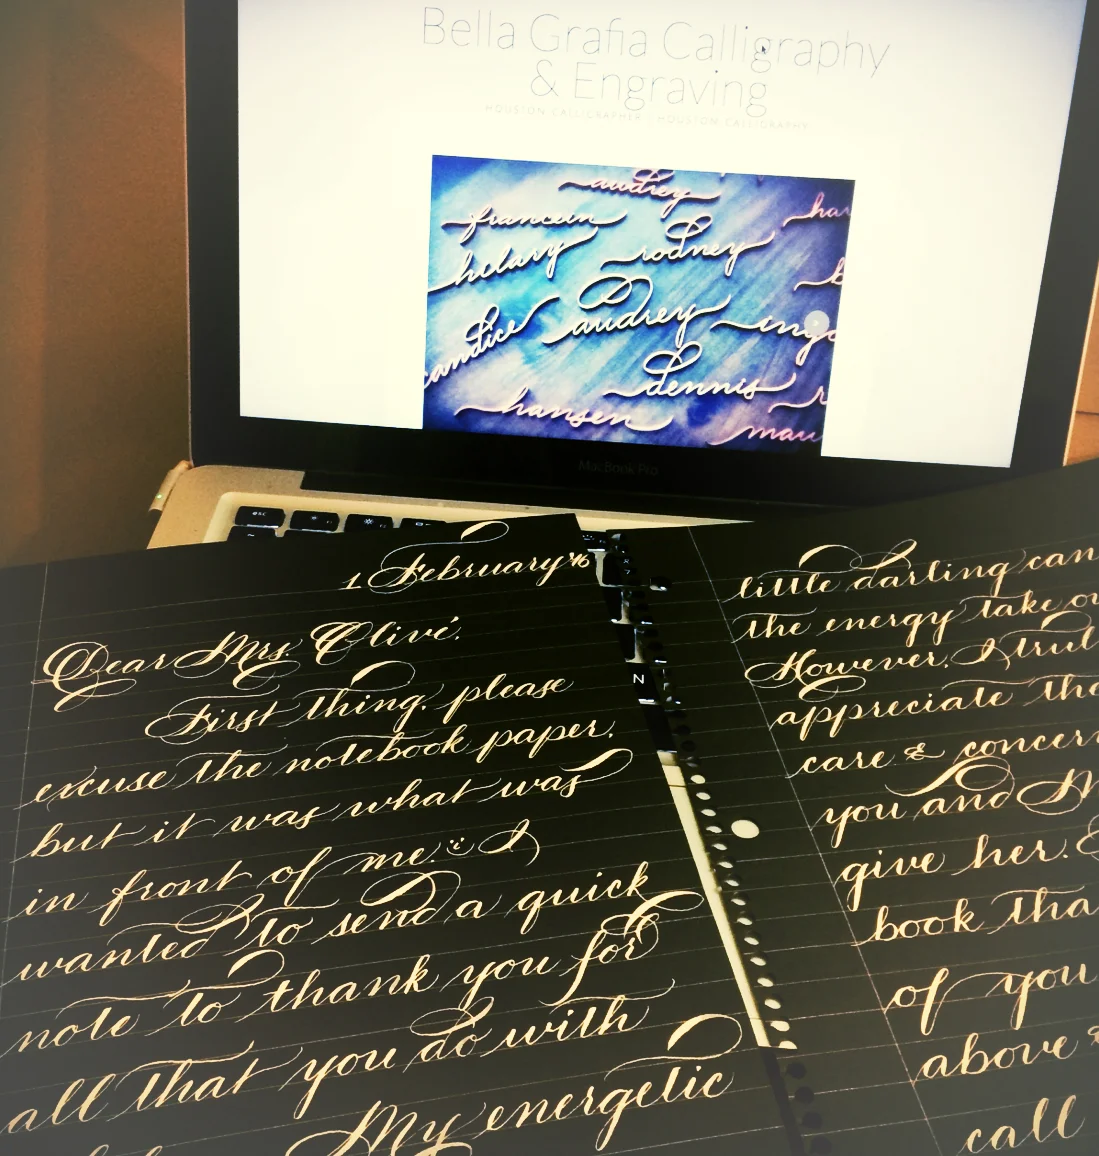 Bella Grafia Calligraphy
& Engraving
HOUSTON CALLIGRAPHER | HOUSTON CALLIGRAPHY
audrey
francein
har
hilary
rodney
candice
audrey
dennis
hansen
mau
MacBook Pro
esc
N
1 February '16
Dear Mrs. Olivé,
First thing, please
excuse the notebook paper,
but it was what was
in front of me. :) I
wanted to send a quick
note to thank you for
all that you do with
My energetic
little darling can
the energy take
However, I
appreciate
care & concern
you and
give her.
book
of you
above &
call